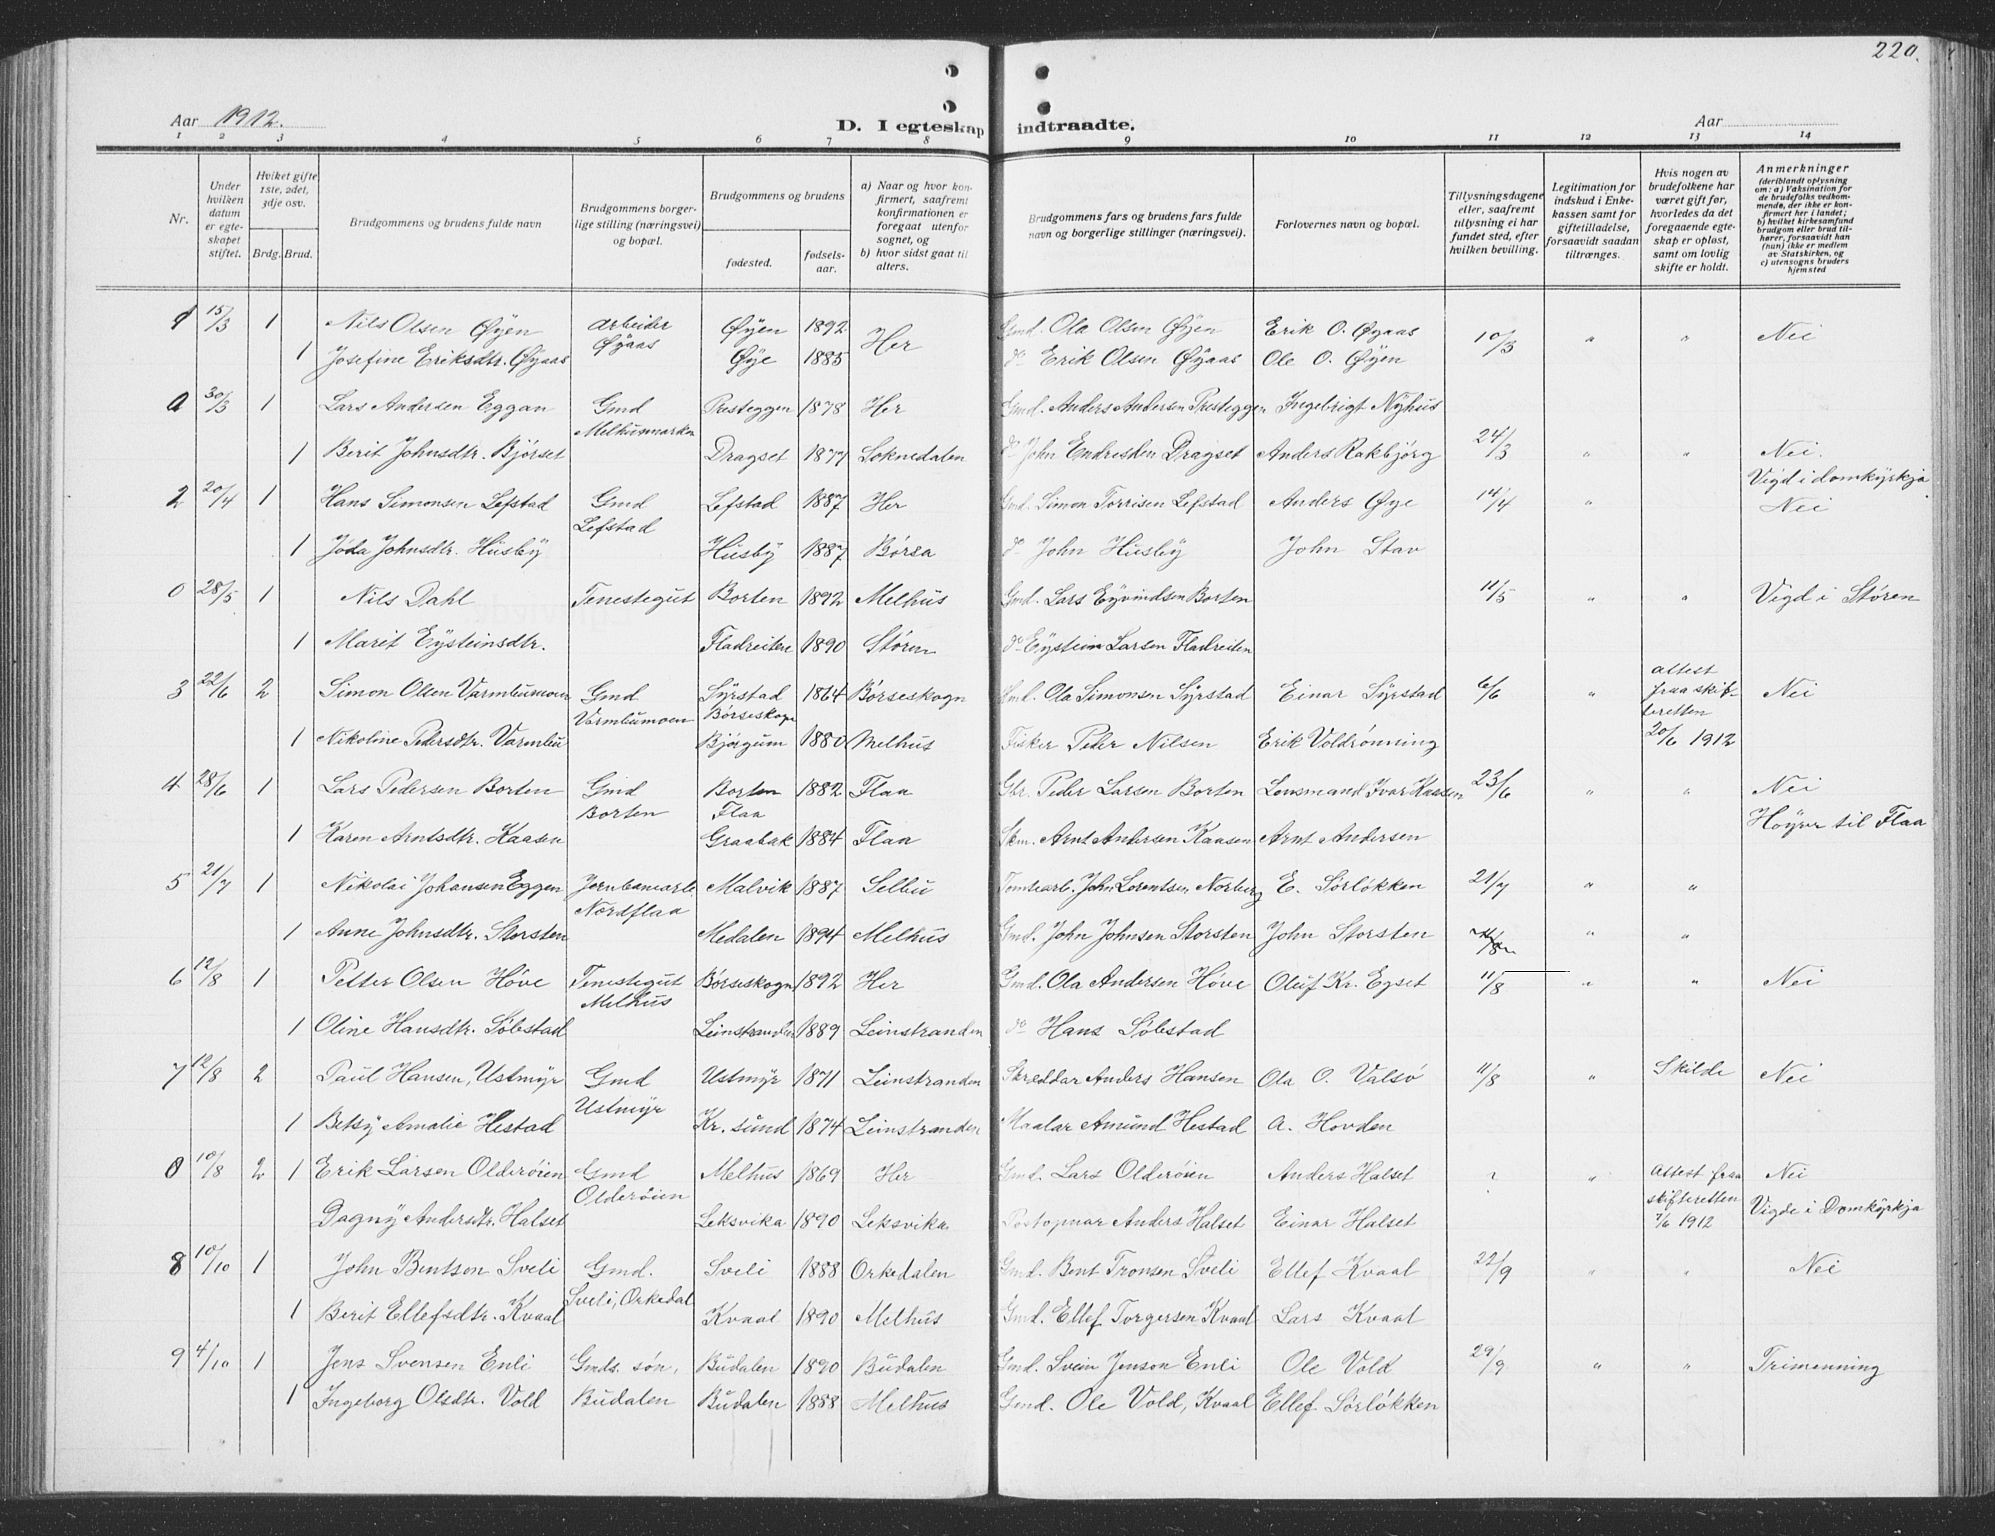 220.
Aar 1912.
D. I egteskap indtraadte.
Aar
1 2 3 4 5 6 7 8 9 10 11 12 13 14
Nr.
Under hvilken datum er egteskapet stiftet.
Hviket gifte 1ste, 2det, 3dje osv.
Brdg. Brud.
Brudgommens og brudens fulde navn
Brudgommens borgerlige stilling (næringsvei) og bopæl.
Brudgommens og brudens
fødested.
fødselsaar.
a) Naar og hvor konfirmert, saafremt konfirmationen er foregaat utenfor sognet, og
b) hvor sidst gaat til alters.
Brudgommens fars og brudens fars fulde navn og borgerlige stillinger (næringsvei).
Forlovernes navn og bopæl.
Tillysningsdagene eller, saafremt tillysning ei har fundet sted, efter hvilken bevilling.
Legitimation for indskud i Enkekassen samt for giftetilladelse, forsaavidt saadan tiltrænges.
Hvis nogen av brudefolkene har været gift før, hvorledes da det foregaaende egteskap er opløst, samt om lovlig skifte er holdt.
Anmerkninger
(deriblandt oplysning om: a) Vaksination for de brudefolks vedkommende, der ikke er konfirmert her i landet; b) hvilket kirkesamfund brudgom eller brud tilhører, forsaavidt han (hun) ikke er medlem av Statskirken, og c) utensogns bruders hjemsted
1 15/3 1 Nils Olsen Øyen arbeider Øyaas Øyen 1892 Her Gmd. Ola Olsen Øyen Erik O. Øyaas 10/3 " " Nei
1 Josefine Eriksdtr. Øyaas Øye 1885 do Erik Olsen Øyaas Ole O. Øyen
0 30/3 1 Lars Andersen Eggan Gmd Melhusmarken Presteggen 1878 Her Gmd. Anders Andersen Presteggen Ingebrigt Nyhus
1 Berit Johnsdtr. Bjørset Dragset 1877 Soknedalen do John Endresden Dragset Anders Rakbjørg 24/3 " " Nei.
Vigd i domkyrkja
2 20/4 1 Hans Simonsen Lefstad Gmd Lefstad Lefstad 1887 Her Gmd. Simon Torrisen Lefstad Anders Øye 14/4 " Nei
1 Joda Johnsdtr. Husby Husby 1887 Børsa do John Husby John Stav
0 28/5 1 Nils Dahl Tenestegut Borten 1892 Melhus Gmd. Lars Eyvindsen Borten 11/5 " " Vigd i Støren
1 Marit Eysteinsdtr. Fladreiten 1890 Støren do Eystein Larsen Fladreiten
3 22/6 2 Simon Olsen Varmbumoen Gmd Varmbumoen Syrstad Børseskogn 1864 Børseskogn Gmd. Ola Simonsen Syrstad Einar Syrstad 6/6 " attest fraa skifteretten 20/6 1912 Nei
1 Nikoline Pedersdtr. Varmbu Bjørgum 1880 Melhus Fisker Peder Nilsen Erik Voldrønning
4 28/6 1 Lars Pedersen Borten Gmd Borten Borten Flaa 1882 Flaa Gbr. Peder Larsen Borten Lensmand Ivar Kaasen 23/6 " " Nei
Høyrer til Flaa
1 Karen Arntsdtr. Kaasen Graabak 1884 Flaa Skm. Arnt Andersen Kaasen Arnt Andersen
5 21/7 1 Nikolai Johansen Eggen Jernbanearb. Nordflaa Malvik 1887 Selbu Tomtearb. John Lorentsen Norberg E. Sørløkken 21/7 " "
1 Anne Johnsdtr. Storsten Medalen 1894 Melhus Gmd. John Johnsen Storsten John Storsten " "
6 12/8 1 Petter Olsen Høve Tenestegut Melhus Børseskogn 1892 Her Gmd. Ola Andersen Høve Oluf Kr. Egset 11/8 " " Nei
1 Oline Hansdtr. Søbstad Leinstranden 1889 Leinstranden do Hans Søbstad
7 12/8 2 Paul Hansen, Ustmyr Gmd Ustmyr Ustmyr 1871 Leinstranden Skreddar Anders Hansen Ola O. Valsø 11/8 " Skilde Nei
1 Betsy Amalie Hestad Kr. sund 1874 Leinstranden Maalar Amund Hestad A. Hovden
0 10/8 2 1 Erik Larsen Olderøien Gmd Olderøien Melhus 1869 Her Gmd. Lars Olderøien Anders Halset " Attest fraa skifteretten 7/6 1912 Nei
Dagny Andersdtr. Halset Leksvika 1890 Leksvika Postopnar Anders Halset Einar Halset Vigde i Domkyrkja
8 10/10 1 John Bentsen Sveli Gmd. Sveli, Orkedal Sveli 1888 Orkedalen Gmd. Bent Tronsen Sveli Ellef Kvaal 22/9 " " Nei
1 Berit Ellefsdtr. Kvaal Kvaal 1890 Melhus Gmd. Ellef Torgersen Kvaal Lars Kvaal
9 4/10 1 Jens Svensen Enli Gmds. søn, Budalen 1890 Budalen Gmd. Svein Jenson Enli Ole Vold 29/9 " " Trimenning
1 Ingeborg Olsdtr. Vold Budalen Budalen 1888 Melhus Gmd. Ole Vold, Kvaal Ellef Sørløkken